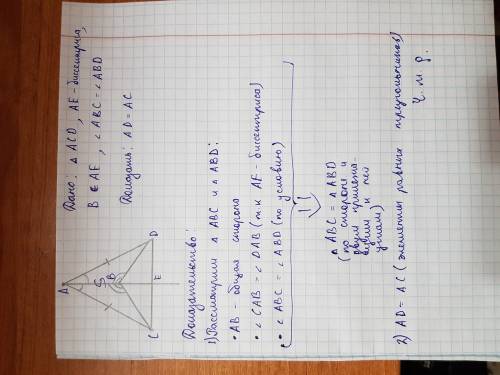 Дано: △ ACD, AE - биссектриса,
B ∈ AE, ∠ABC = ∠ABD
Доказать: AD = AC
A
S
B
C
E
D
Доказательство:
1) Рассмотрим △ ABC и △ ABD:
• AB - общая сторона
• ∠CAB = ∠DAB (т.к AE - биссектриса)
• ∠ABC = ∠ABD (по условию)
△ ABC = △ ABD
(по стороне и
двум прилежа-
щим к ней
углам)
2) AD = AC (элементы равных треугольников)
ч.т.д.